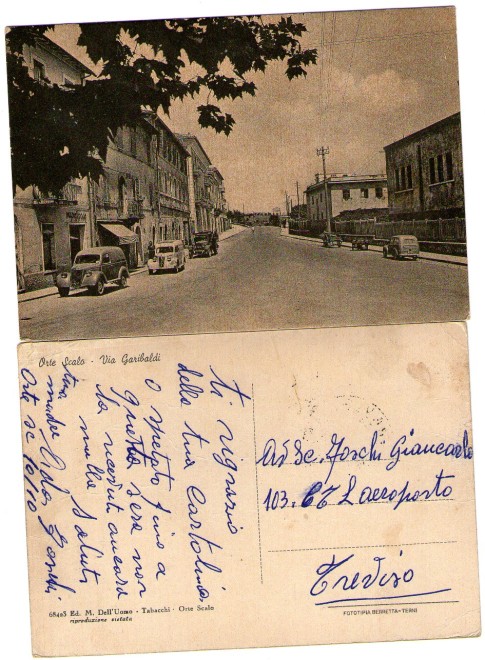 Orte Scalo - Via Garibaldi
ti rigrazio
della tua Cartolina
o spetato fino a
questa sera non
la ricevuta ancora
nulla Saluti
tua
Orte sc 10/10
Av Sc. Foschi Giancarlo
103. CT L aeroposto
Treviso
68405 Ed. M. Dell'Uomo - Tabacchi - Orte Scalo
riproduzione vietata
FOTOTIPIA BERRETTA-TERNI